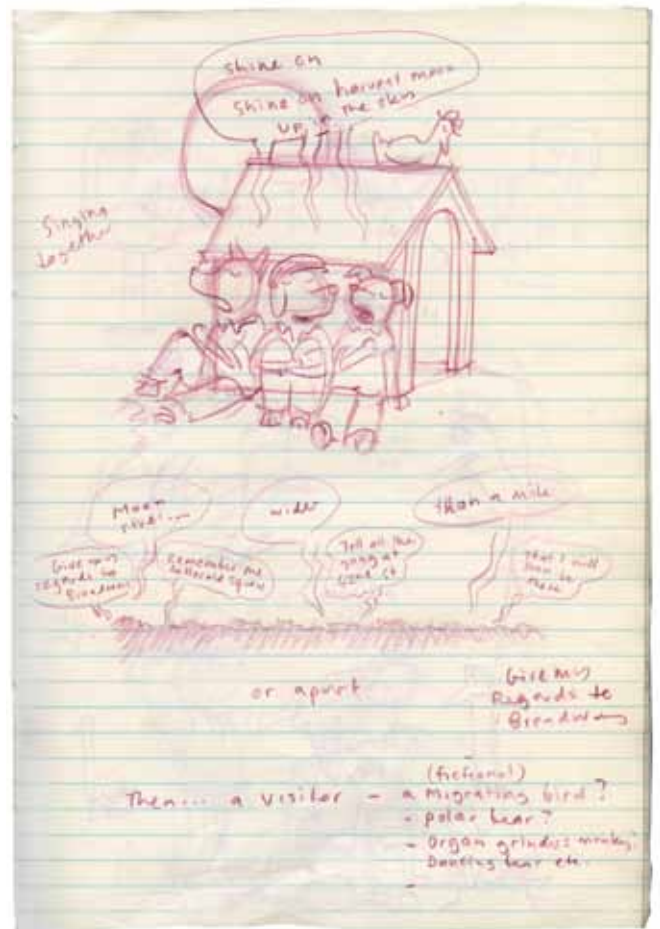 shine on
shine on harvest moon
up in the sky
Singing
together
Moon
river....
wider
than a mile
Give my
regards to
Broadway
Remember me
to Herald Square
Tell all the
gang at
42nd St
that I will
soon be
there
or apart
Give my
Regards to
Broadway
(fictional)
Then... a visitor - a Migrating bird?
- polar bear?
- Organ grinders monkey
Dancing bear etc.
-